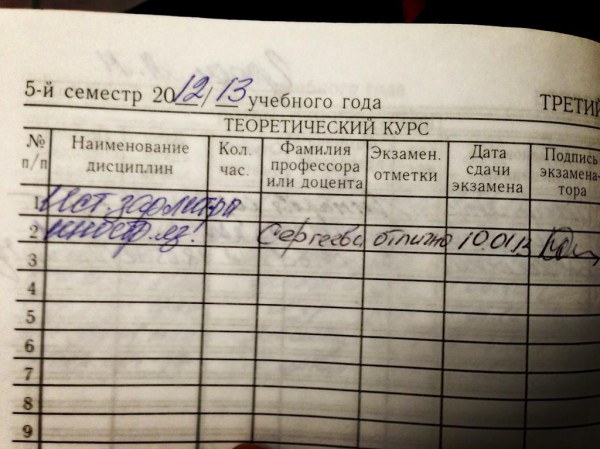 5-й семестр 2012/13 учебного года ТРЕТИЙ
ТЕОРЕТИЧЕСКИЙ КУРС
№ п/п Наименование дисциплин Кол. час. Фамилия профессора или доцента Экзамен. отметки Дата сдачи экзамена Подпись экзамена-тора
1 Ист. зар. лит-ры
2 иностр. яз. Сергеева отлично 10.01.13
3
4
5
6
7
8
9